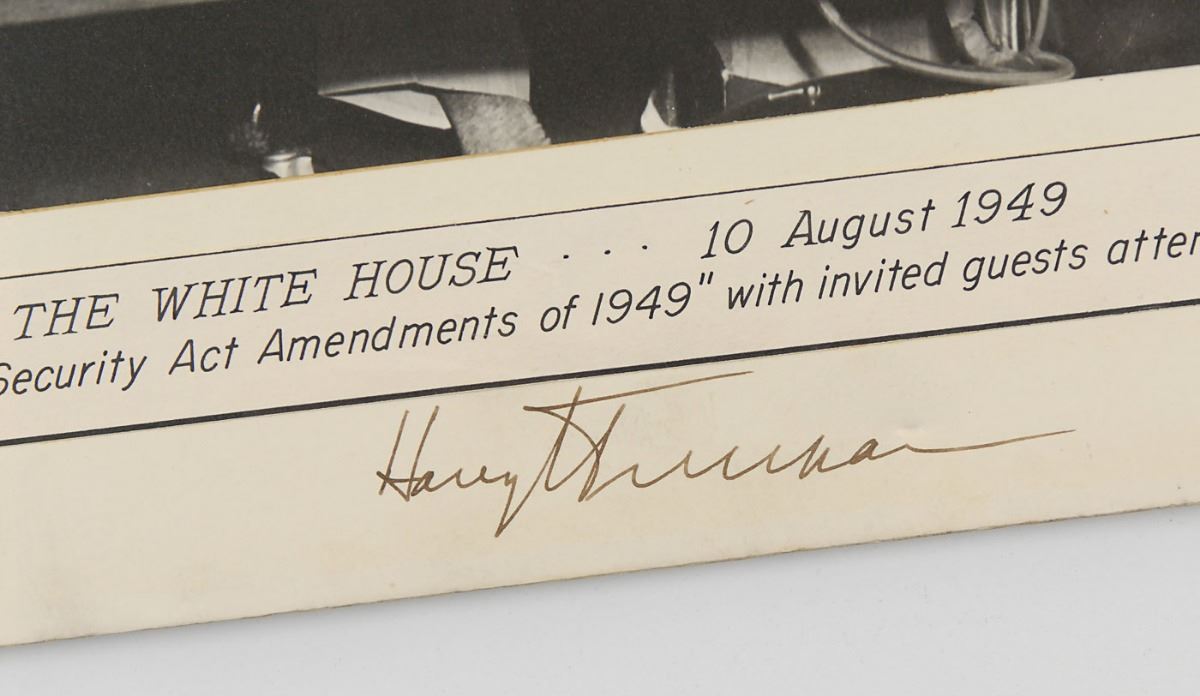 THE WHITE HOUSE . . . 10 August 1949
Security Act Amendments of 1949" with invited guests
Harry Truman